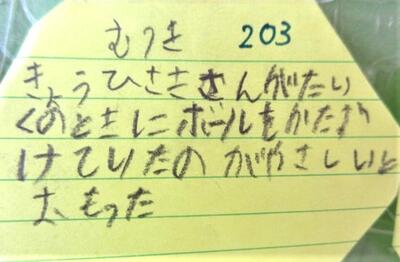 むつき 203
きょうひささきさんがたい
くのときにボールをかたず
けていたのがやさしいと
おもった